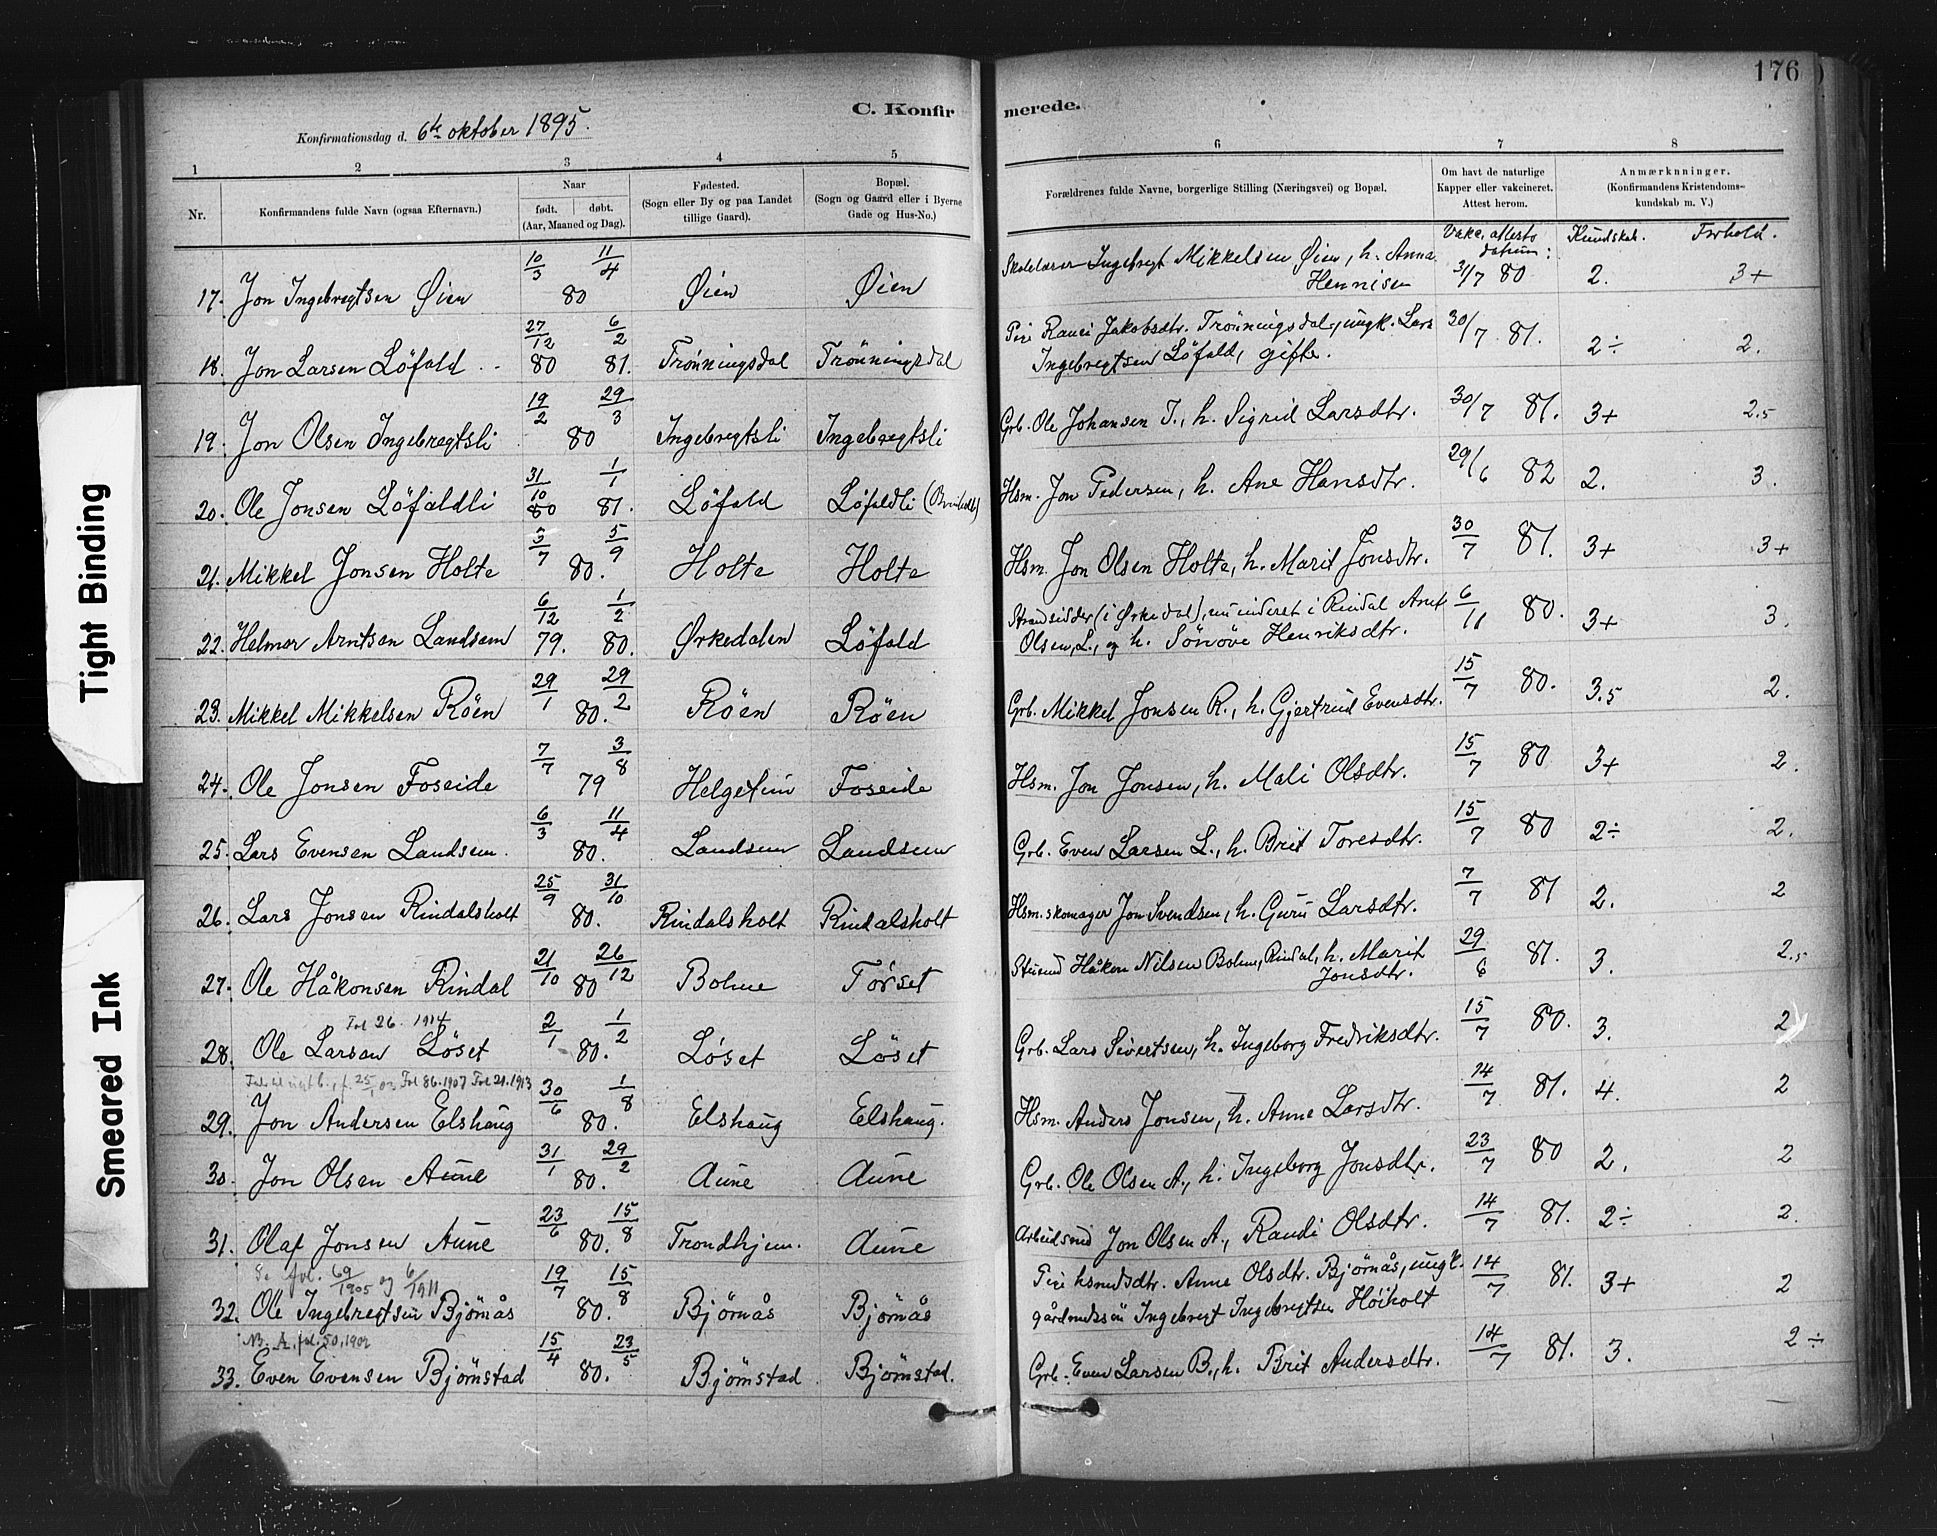 176
C. Konfirmerede.
Konfirmationsdag d. 6te oktober 1895.
1 2 3 4 5 6 7 8
Nr. Konfirmandens fulde Navn (ogsaa Efternavn.) Naar født. døbt. (Aar, Maaned og Dag). Fødested. (Sogn eller By og paa Landet tillige Gaard). Bopæl. (Sogn og Gaard eller i Byerne Gade og Hus-No.) Forældrenes fulde Navne, borgerlige Stilling (Næringsvei) og Bopæl. Om havt de naturlige Kapper eller vakcineret. Attest herom. Anmærkninger. (Konfirmandens Kristendomskundskab m. V.)
Vakc. attests datum: Kundskab. Forhold.
17. Jon Ingebregtsen Øien 10/3 11/4 80 Øien Øien Skolelærer Ingebregt Mikkelsen Øien, h. Anna Hennisen 31/7 80 2. 3+
18. Jon Larsen Löfald 27/12 80 6/2 81. Trönningsdal Trönningsdal Pige Jakobsdtr. Trönningsdal, ungk. Lars Ingebregtsen Löfald, gifte. 30/7 81. 2÷ 2.
19. Jon Olsen Ingebregtsli 19/2 29/3 80 Ingebregtsli Ingebregtsli Grb. Ole Johansen I., h. Sigrid Larsdtr. 30/7 81. 3+ 2.5
20. Ole Jonsen Löfaldli 31/10 80 1/1 81. Löfald Löfaldli Hsm. Jon Pedersen, h. Ane Hansdtr. 29/6 82 2. 3.
21. Mikkel Jonsen Holte 3/7 5/9 80. Holte Holte Hsm. Jon Olsen Holte, h. Marit Jonsdtr. 30/7 81. 3+ 3+
22. Helmer Arntsen Landsem 6/12 79. 1/2 80. Ørkedalen Löfald Strandsidder (i Ørkedal), nu inderst i Rindal Arnt Olsen, L., og h. Sönöve Henriksdtr. 6/11 80. 3+ 3.
23. Mikkel Mikkelsen Röen 29/1 29/2 80. Röen Röen Grb. Mikkel Jonsen R., h. Gjertrud Evensdtr. 15/7 80. 3.5 2.
24. Ole Jonsen Foseide 7/7 3/8 79 Helgetun Foseide Hsm. Jon Jonsen, h. Mali Olsdtr. 15/7 80 3+ 2.
25. Lars Evensen Landsem. 6/3 11/4 80. Landsem Landsem Grb. Even Larsen L., h. Brit Toresdtr. 15/7 80 2÷ 2.
26. Lars Jonsen Rindalsholt 25/9 31/10 80. Rindalsholt Rindalsholt Hsm. skomager Jon Svendsen, h. Guru Larsdtr. 7/7 81 2. 2
27. Ole Håkonsen Rindal 21/10 26/12 80 Bolme Törset Håkon Nilsen Bolme, Rindal, h. Marit Jonsdtr. 29/6 81. 3. 2.5
Fol 26. 1914
28. Ole Larsen Löset 2/1 1/2 80. Löset Löset Grb. Lars Sivertsen, h. Ingeborg Fredriksdtr. 15/7 80. 3. 2
Fol 86. 1907 Fol 21. 1913
29. Jon Andersen Elshaug 30/6 1/8 80. Elshaug Elshaug. Hsm. Anders Jonsen, h. Anne Larsdtr. 14/7 81. 4. 2
30. Jon Olsen Aune 31/1 29/2 80. Aune Aune Grb. Ole Olsen A., h. Ingeborg Jonsdtr. 23/7 80 2. 2
31. Olaf Jonsen Aune 23/6 15/8 80. Trondhjem. Aune Arbeidsmd Jon Olsen A., Randi Olsdtr. 14/7 81. 2÷ 2.
Se fol. 69/1905 og 6/1911
32. Ole Ingebregtsen Bjömås 19/7 15/8 80. Bjömås Bjömås Pige hsmdsdtr. Anne Olsdtr. Bjömås, ungk. gårdmdssön Ingebregt Ingebregtsen Höiholt 14/7 81. 3+ 2
NB. A. fol. 50, 1902
33. Even Evensen Bjömstad 15/4 23/5 80. Bjömstad Bjömstad. Grb. Even Larsen B., h. Brit Andersdtr. 14/7 81. 3. 2÷
Tight Binding
Smeared Ink